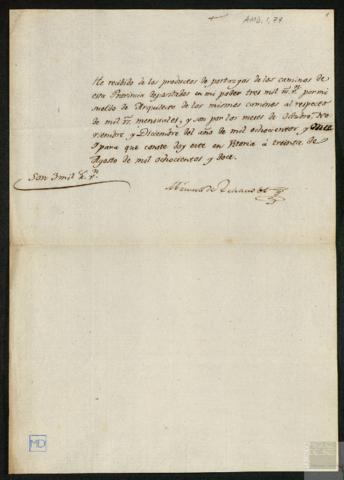 AMD. 1, 79
He recibido de los productos de portazgos de los caminos de
esta Provincia depositados en mi poder tres mil rr.s vn. por mi
sueldo de Arquitecto de los mismos caminos al respecto
de mil rr.s mensuales, y son por los meses de Octubre, No-
viembre, y Diciembre del año de mil ochocientos, y once
y para que conste doy este en Vitoria à treinta de
Agosto de mil ochocientos y doce.
Son 3 mil r.s vn.
Manuel de Echanove
MD